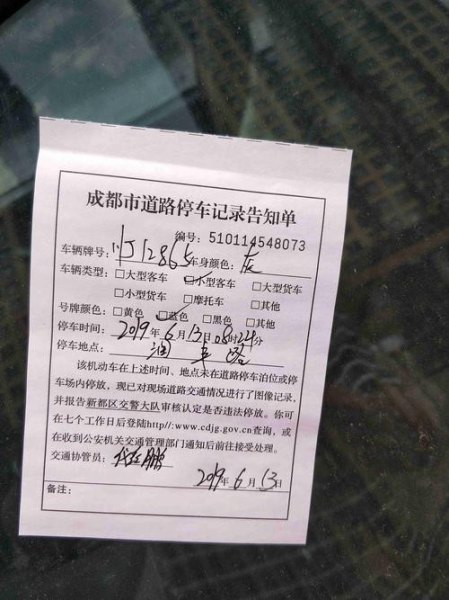 成都市道路停车记录告知单
编号：510114548073
车辆牌号：川J12865 车身颜色：灰
车辆类型：□大型客车 ☑小型客车 □大型货车
□小型货车 □摩托车 □其他
号牌颜色：□黄色 ☑蓝色 □黑色 □其他
停车时间：2019年6月13日08时24分
停车地点：车路
该机动车在上述时间、地点未在道路停车泊位或停
车场内停放，现已对现场道路交通情况进行了图像记录，
并报告新都区交警大队审核认定是否违法停放。你可
在七个工作日后登陆http//:www.cdjg.gov.cn查询，或
在收到公安机关交通管理部门通知后前往接受处理。
交通协管员：鹏
2019年6月13日
备注：